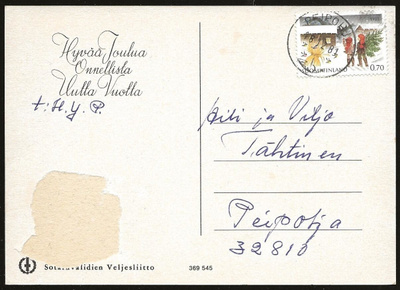 Hyvää Joulua
Onnellista
Uutta Vuotta
t: H. y. P.
Aili ja Viljo
Tähtinen
Peipohja
32810
Sotainvalidien Veljesliitto
369 545
SUOMI FINLAND
0,70